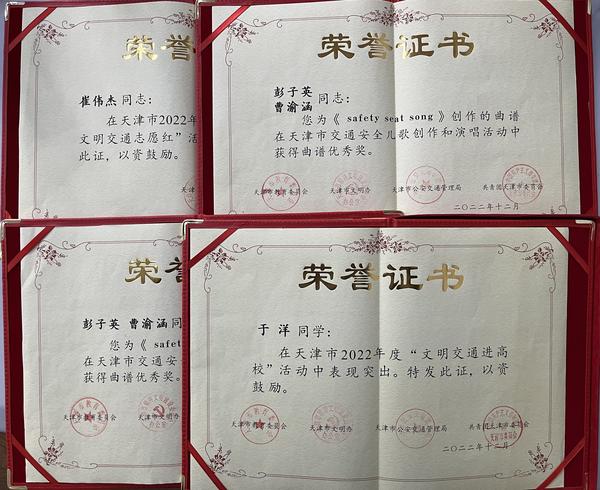 荣誉
崔伟杰 同志：
在天津市2022年
文明交通志愿红”活
此证，以资鼓励。
天津市教育委员会
荣誉证书
彭子英
曹渝涵 同志：
您为《 safety seat song 》创作的曲谱
在天津市交通安全儿歌创作和演唱活动中
获得曲谱优秀奖。
天津市教育委员会 天津市文明办 天津市公安交通管理局 共青团天津市委员会
二〇二二年十二月
荣誉
彭子英 曹渝涵 同
您为《 safet
在天津市交通安
获得曲谱优秀奖
天津市教育委员会 天津市文明办
荣誉证书
于 洋 同学：
在天津市2022年度“文明交通进高
校”活动中表现突出。特发此证，以资
鼓励。
天津市教育委员会 天津市文明办 天津市公安交通管理局 共青团天津市委员会
二〇二二年十二月